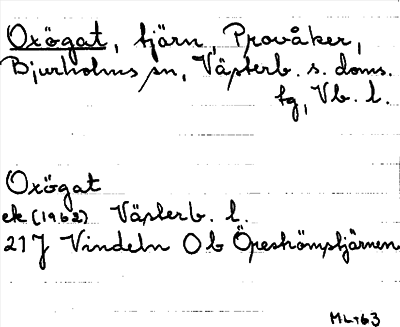 Oxögat, tjärn, Provåker,
Bjurholms sn, Västerb. s. doms.
tg, Vb. l.
Oxögat
ek (1962) Västerb. l.
21J Vindeln 0b Öreströmstjärnen
ML-63